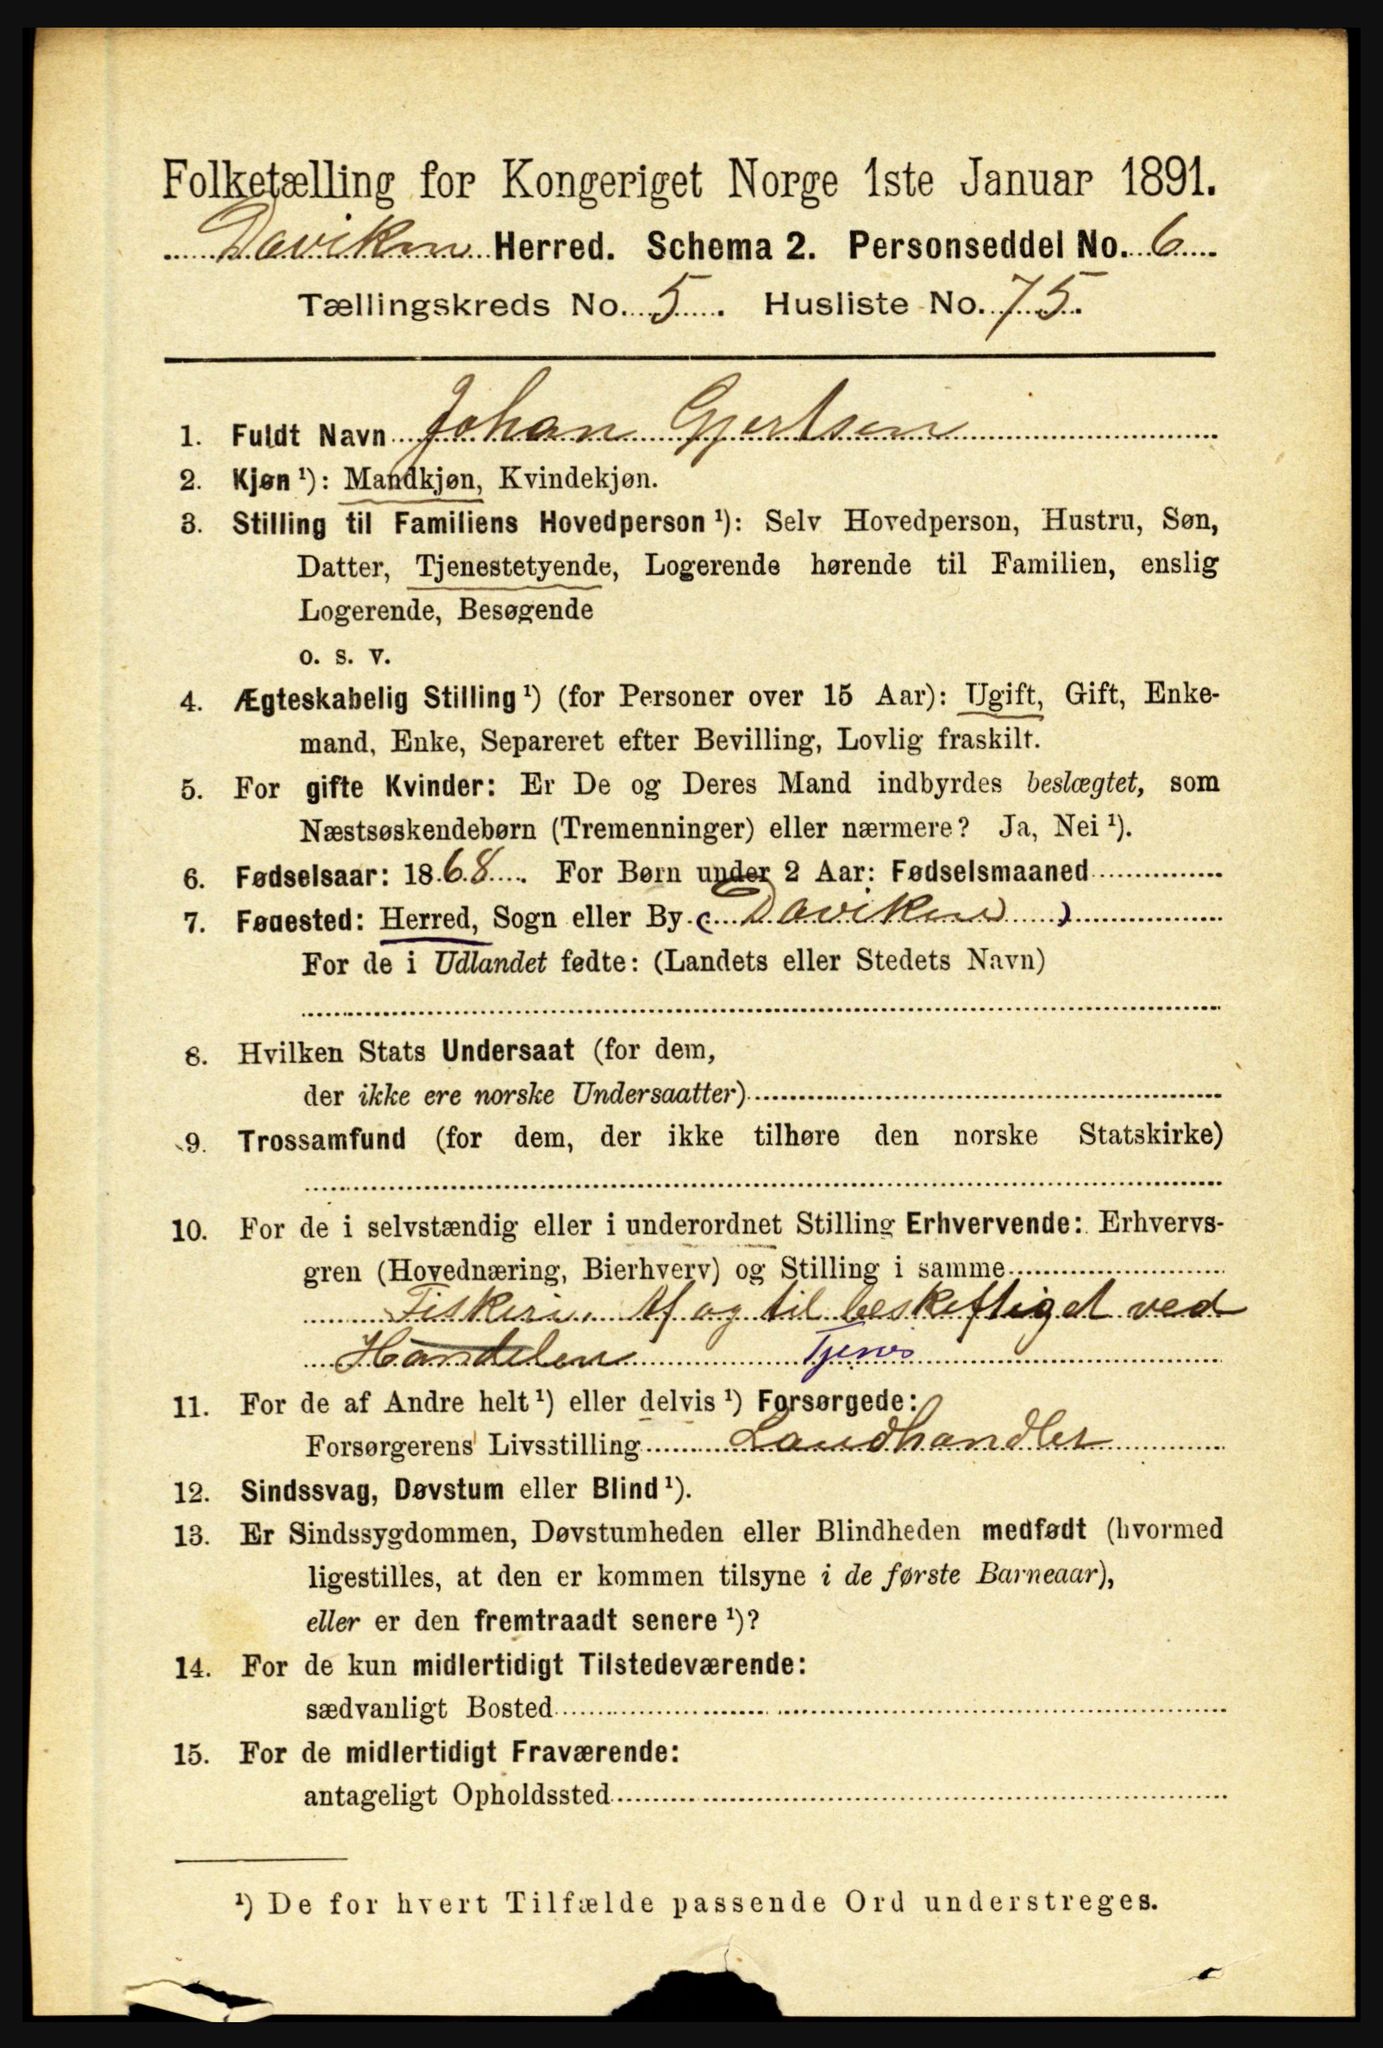 Folketælling for Kongeriget Norge 1ste Januar 1891.
Daviken Herred. Schema 2. Personseddel No. 6
Tællingskreds No. 5. Husliste No. 75.
1. Fuldt Navn Johan Gjertsen
2. Kjøn ¹): Mandkjøn, Kvindekjøn.
3. Stilling til Familiens Hovedperson ¹): Selv Hovedperson, Hustru, Søn,
Datter, Tjenestetyende, Logerende hørende til Familien, enslig
Logerende, Besøgende
o. s. v.
4. Ægteskabelig Stilling ¹) (for Personer over 15 Aar): Ugift, Gift, Enke-
mand, Enke, Separeret efter Bevilling, Lovlig fraskilt.
5. For gifte Kvinder: Er De og Deres Mand indbyrdes beslægtet, som
Næstsøskendebørn (Tremenninger) eller nærmere? Ja, Nei ¹).
6. Fødselsaar: 1868. For Børn under 2 Aar: Fødselsmaaned
7. Føuested: Herred, Sogn eller By (Daviken)
For de i Udlandet fødte: (Landets eller Stedets Navn)
8. Hvilken Stats Undersaat (for dem,
der ikke ere norske Undersaatter)
9. Trossamfund (for dem, der ikke tilhøre den norske Statskirke)
10. For de i selvstændig eller i underordnet Stilling Erhvervende: Erhvervs-
gren (Hovednæring, Bierhverv) og Stilling i samme
Fiskeri, Af og til beskeftiget ved
Handelen Tjener
11. For de af Andre helt ¹) eller delvis ¹) Forsørgede:
Forsørgerens Livsstilling Landhandler
12. Sindssvag, Døvstum eller Blind ¹).
13. Er Sindssygdommen, Døvstumheden eller Blindheden medfødt (hvormed
ligestilles, at den er kommen tilsyne i de første Barneaar),
eller er den fremtraadt senere ¹)?
14. For de kun midlertidigt Tilstedeværende:
sædvanligt Bosted
15. For de midlertidigt Fraværende:
antageligt Opholdssted
¹) De for hvert Tilfælde passende Ord understreges.